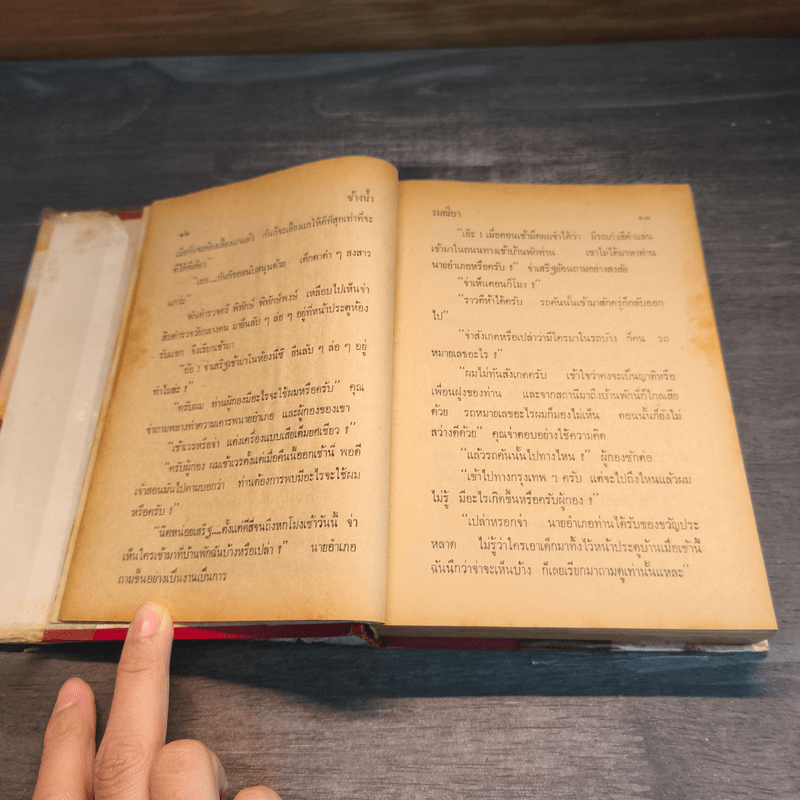 ๑๒ ช้างน้ำ
เมื่อกันจะต้องเลี้ยงแกแล้ว กันก็จะเลี้ยงแกให้ดีที่สุดเท่าที่จะ
ทำได้ทีเดียว”
“เธอ....กันก็ขอสนับสนุนด้วย เด็กตาดำ ๆ สงสาร
แกว่ะ”
พันตำรวจตรี พิทักษ์ พิทักษ์พงษ์ เหลือบไปเห็นจ่า
สิบตำรวจวัยกลางคน มายืนลับ ๆ ล่อ ๆ อยู่ที่หน้าประตูห้อง
รับแขก จึงเรียกเข้ามา
“อ้อ ! จ่าเสริฐเข้ามาในห้องนี่ซิ ยืนลับ ๆ ล่อ ๆ อยู่
ทำไมล่ะ ?”
“ครับผม ท่านผู้กองมีอะไรจะใช้ผมหรือครับ” คุณ
จ่าถามพลางทำความเคารพนายอำเภอ และผู้กองของเขา
“เข้าเวรหรือจ่า แต่งเครื่องแบบเสียเต็มยศเชียว ?”
“ครับผู้กอง ผมเข้าเวรตั้งแต่เมื่อคืนนี้ออกเช้านี่ พอดี
เจ้าสอนมันไปตามบอกว่า ท่านต้องการพบมีอะไรจะใช้ผม
หรือครับ ?”
“นิดหน่อยเสริฐ....ตั้งแต่ตีสี่จนถึงหกโมงเช้าวันนี้ จ่า
เห็นใครเข้ามาที่บ้านพักฉันบ้างหรือเปล่า ?” นายอำเภอ
ถามขึ้นอย่างเป็นงานเป็นการ
รมณียา ๑๓
“เอ๊ะ ! เมื่อตอนเช้ามืดผมจำได้ว่า มีรถเก๋งสีดำแล่น
เข้ามาในถนนทางเข้าบ้านพักท่าน เขาไม่ได้มาหาท่าน
นายอำเภอหรือครับ ?” จ่าเสริฐย้อนถามอย่างสงสัย
“จ่าเห็นตอนกี่โมง ?”
“ราวตีห้าได้ครับ รถคันนั้นเข้ามาสักครู่ก็กลับออก
ไป”
“จ่าสังเกตหรือเปล่าว่ามีใครมาในรถบ้าง กี่คน รถ
หมายเลขอะไร ?”
“ผมไม่ทันสังเกตครับ เข้าใจว่าคงจะเป็นญาติหรือ
เพื่อนฝูงของท่าน และจากสถานีมาถึงบ้านพักนี่ก็ไกลเสีย
ด้วย รถหมายเลขอะไรผมก็มองไม่เห็น ตอนนั้นก็ยังไม่
สว่างดีด้วย” คุณจ่าตอบอย่างใช้ความคิด
“แล้วรถคันนั้นไปทางไหน ?” ผู้กองซักต่อ
“เข้าไปทางกรุงเทพ ๆ ครับ แต่จะไปถึงไหนแล้วผม
ไม่รู้ มีอะไรเกิดขึ้นหรือครับผู้กอง ?”
“เปล่าหรอกจ่า นายอำเภอท่านได้รับของขวัญประ
หลาด ไม่รู้ว่าใครเอาเด็กมาทิ้งไว้หน้าประตูบ้านเมื่อเช้านี้
ฉันนึกว่าจ่าจะเห็นบ้าง ก็เลยเรียกมาถามดูเท่านั้นแหละ”